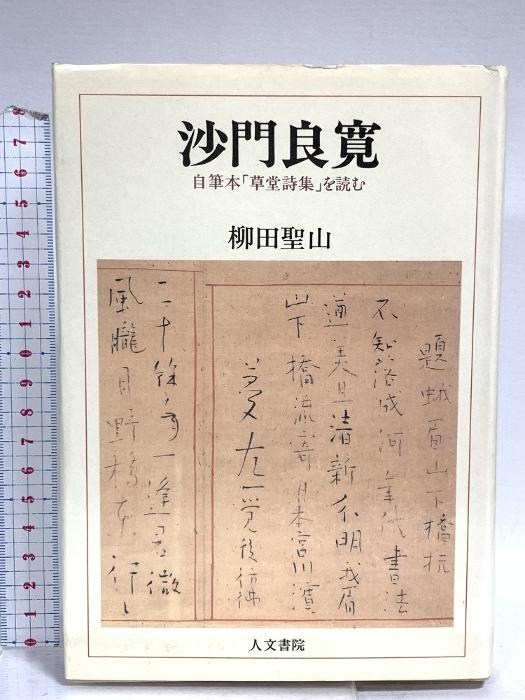 沙門良寛
自筆本「草堂詩集」を読む
柳田聖山
題蛾眉山下橋杭
不知落成何年代書法
遒美且清新分明我眉
山下橋流寄日本宮川濱
夢左一覚後彷彿
二十餘年一逢君微
風朧月野橋東行〻
人文書院
0 1 2 3 4 5 6 7 8 9 0 1 2 3 4 5 6 7 8